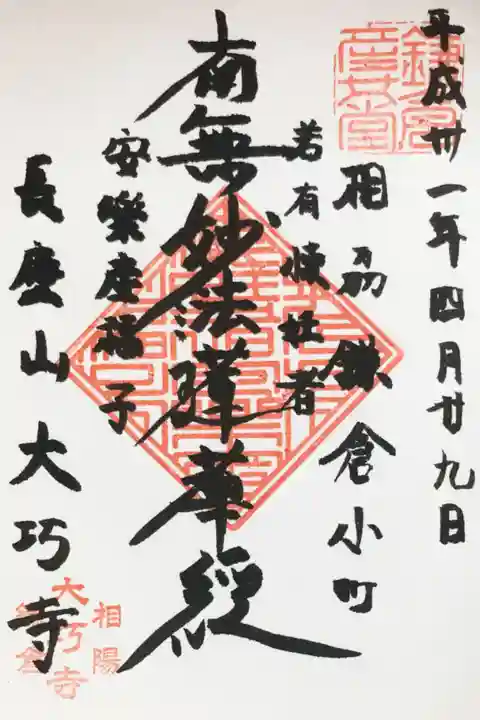 平成卅一年四月廿九日
相刕鎌倉小町
若有懐妊者
南無妙法蓮華経
安樂産福子
長慶山大巧寺
相陽
大巧寺
鎌倉